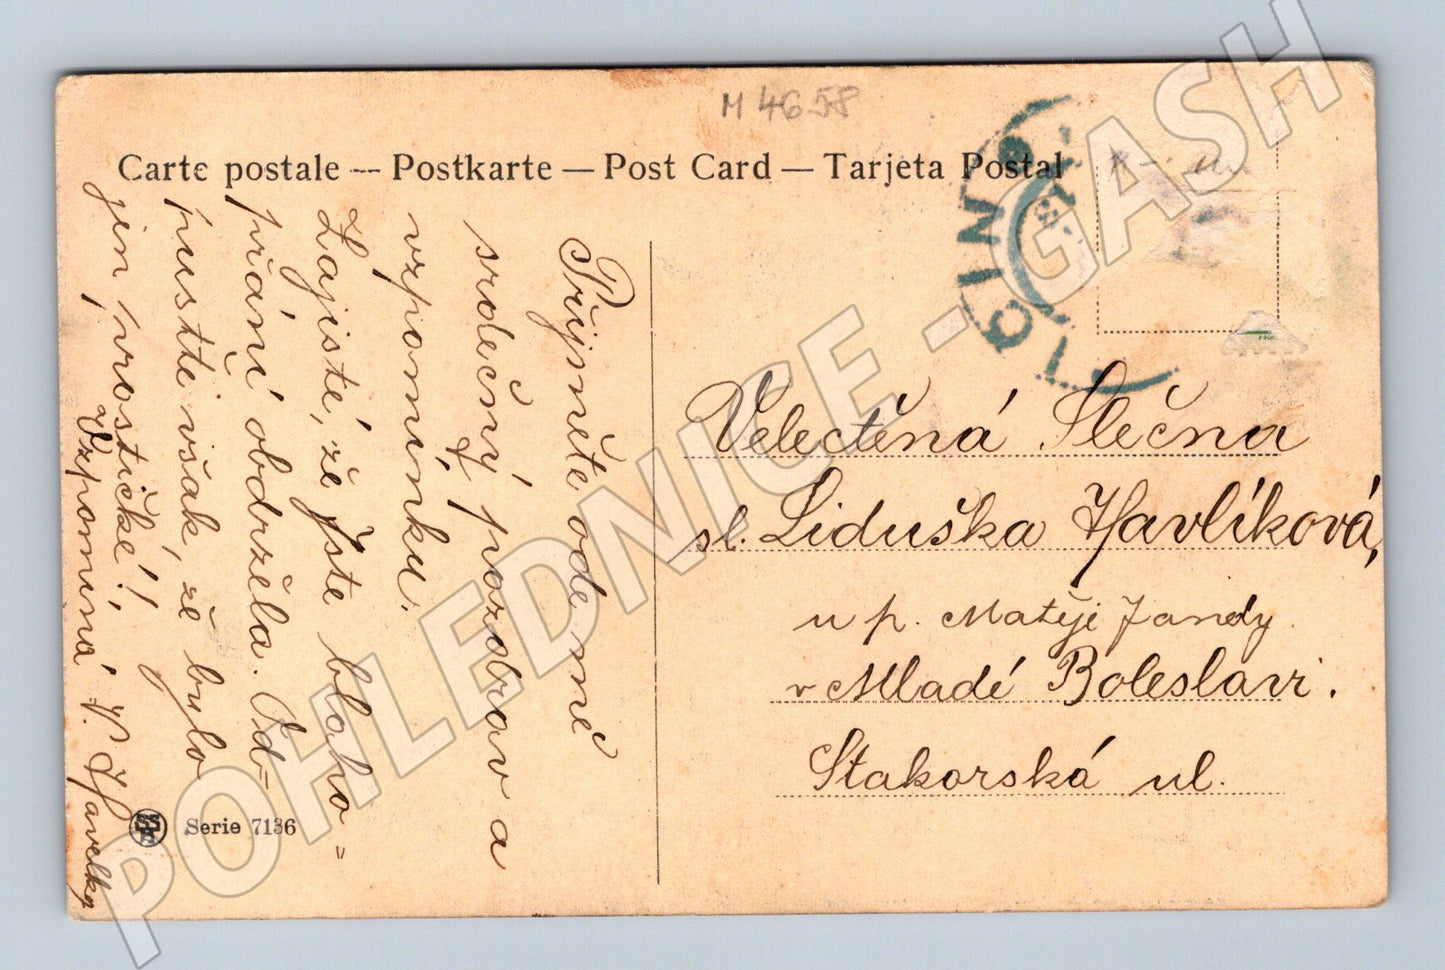 M 4658
Carte postale — Postkarte — Post Card — Tarjeta Postal
Přijměte ode mě
srdečný pozdrav a
vzpomínku.
Zajisté, že jste blaho-
přání obdržela. Od-
pusťte však, že bylo
jen prostičké!
Vzpomíná V. Havelka
Serie 7136
Velectěná Slečna
sl. Liduška Havlíková,
u p. Matěje Jandy
v Mladé Boleslavi.
Stakorská ul.
POHLEDNICE - GASH